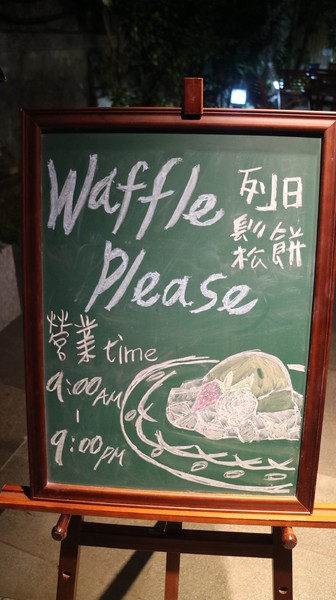 Waffle
Please
列日
鬆餅
營業time
9:00AM
-
9:00PM